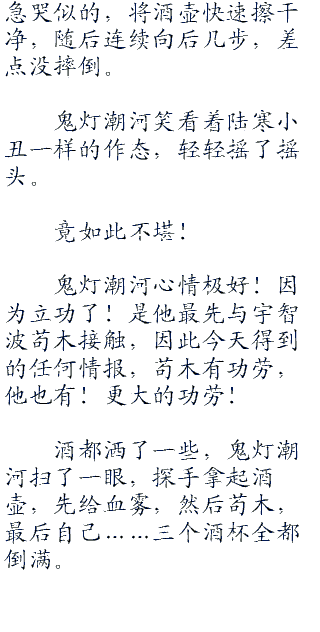 急哭似的，将酒壶快速擦干
净，随后连续向后几步，差
点没摔倒。
鬼灯潮河笑看着陆寒小
丑一样的作态，轻轻摇了摇
头。
竟如此不堪！
鬼灯潮河心情极好！因
为立功了！是他最先与宇智
波苟木接触，因此今天得到
的任何情报，苟木有功劳，
他也有！更大的功劳！
酒都洒了一些，鬼灯潮
河扫了一眼，探手拿起酒
壶，先给血雾，然后苟木，
最后自己……三个酒杯全都
倒满。